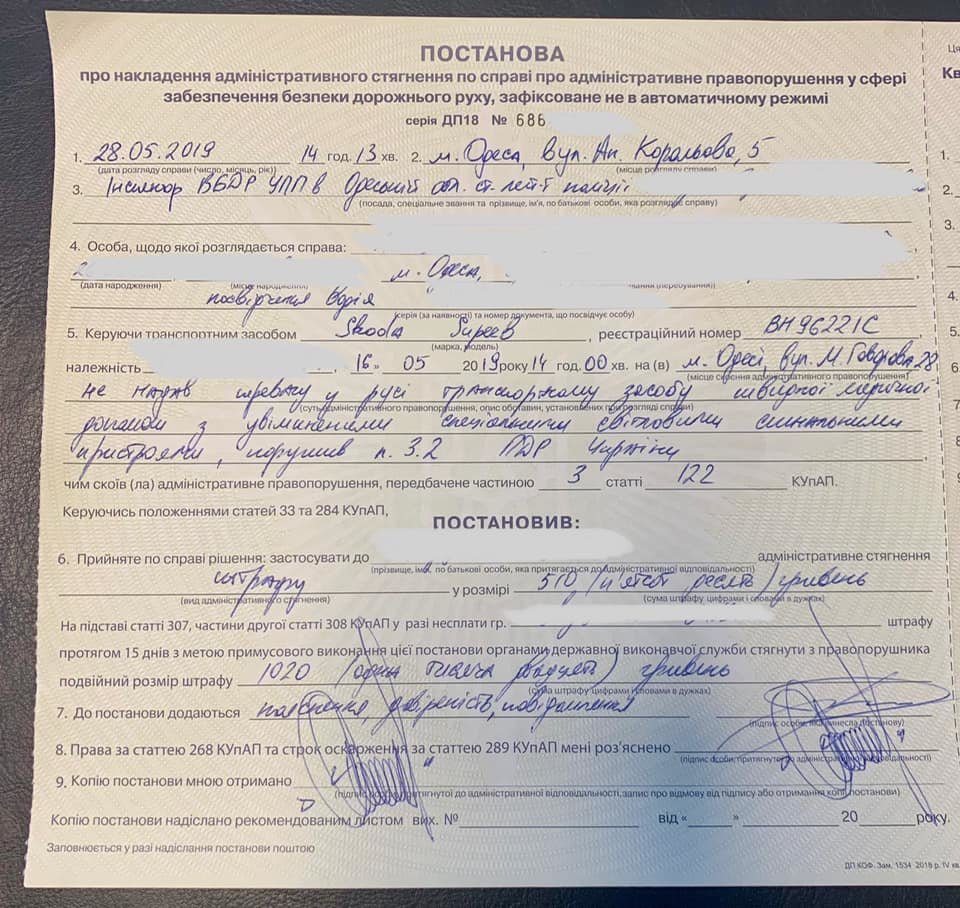 ПОСТАНОВА
про накладення адміністративного стягнення по справі про адміністративне правопорушення у сфері
забезпечення безпеки дорожнього руху, зафіксоване не в автоматичному режимі
серія ДП18 № 686
1. 28.05.2019 14 год. 13 хв. 2. м. Одеса, вул. Ак. Корольова, 5
(дата розгляду справи (число, місяць, рік)) (місце розгляду справи)
3. Інспектор ВБДР УПП в Одеській обл. ст. лейт-т поліції
(посада, спеціальне звання та прізвище, ім'я, по батькові особи, яка розглядає справу)
4. Особа, щодо якої розглядається справа:
м. Одеса,
(дата народження)
посвідчення водія
серія (за наявності) та номер документа, що посвідчує особу)
5. Керуючи транспортним засобом Skoda Superb, реєстраційний номер ВН9622ІС
(марка, модель)
належність , 16» 05 2019 року 14 год. 00 хв. на (в) м. Одесі, вул. М. Говорова 28
(місце скоєння адміністративного правопорушення)
не надав перевагу у русі транспортному засобу швидкої медичної
(суть адміністративного правопорушення, опис обставин, установлених при розгляді справи)
допомоги з увімкненими спеціальними світловими сигнальними
пристроями, порушив п. 3.2 ПДР України
чим скоїв (ла) адміністративне правопорушення, передбачене частиною 3 статті 122 КУпАП.
Керуючись положеннями статей 33 та 284 КУпАП,
ПОСТАНОВИВ:
6. Прийняте по справі рішення: застосувати до адміністративне стягнення
(прізвище, ім'я, по батькові особи, яка притягається до адміністративної відповідальності)
штрафу у розмірі 510 /п'ятсот десять/ гривень
(вид адміністративного стягнення) (сума штрафу цифрами і словами в дужках)
На підставі статті 307, частини другої статті 308 КУпАП у разі несплати гр. штрафу
протягом 15 днів з метою примусового виконання цієї постанови органами державної виконавчої служби стягнути з правопорушника
подвійний розмір штрафу 1020 /одна тисяча двадцять/ гривень
(сума штрафу цифрами і словами в дужках)
7. До постанови додаються пояснення, довіреність, повідомлення
(підпис особи, яка винесла постанову)
8. Права за статтею 268 КУпАП та строк оскарження за статтею 289 КУпАП мені роз'яснено
(підпис особи, притягнутої до адміністративної відповідальності)
9. Копію постанови мною отримано
(підпис особи, притягнутої до адміністративної відповідальності, запис про відмову від підпису або отримання копії постанови)
Копію постанови надіслано рекомендованим листом вих. № від « » 20 року.
Заповнюється у разі надіслання постанови поштою
ДП КОФ. Зам. 1534 2018 р. IV кв.
Ця
Кв
1.
2.
3.
4.
5.
6.
7.
8.
9.